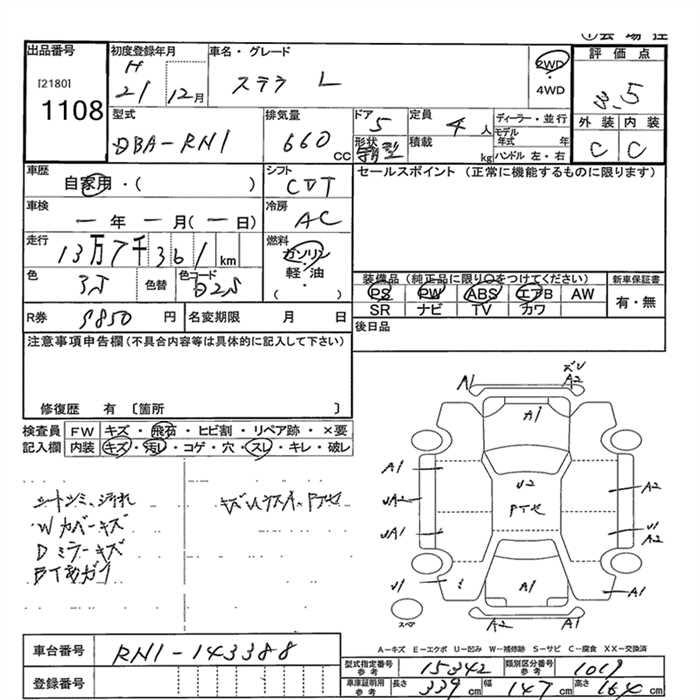 出品番号
[2180]
1108
初度登録年月
H
21 12月
車名・グレード
ステラ L
2WD
・
4WD
評価点
3.5
外装 内装
C C
型式
DBA-RN1
排気量
660 cc
ドア 5
形状
定員 4 人
積載 kg
ディーラー・並行
モデル年式 年
ハンドル 左・右
車歴
自家用・( )
シフト
CVT
セールスポイント (正常に機能するものに限ります)
車検
ー 年 ー 月(ー 日)
冷房
AC
走行
13万7千361 km
燃料
ガソリン
・
軽 油
・
( )
色
色替
色コード
D25
装備品 (純正品に限り○をつけてください)
PS PW ABS エアB AW
SR ナビ TV カワ
新車保証書
有・無
R券
9850 円
名変期限 月 日
後日品
注意事項申告欄(不具合内容等は具体的に記入して下さい)
修復歴 有 〔箇所 〕
検査員
記入欄
FW キズ・飛石・ヒビ割・リペア跡・×要
内装 キズ・汚レ・コゲ・穴・スレ・キレ・破レ
シートシミ、汚れ
Wカバーキズ
Dミラーキズ
A1 A2
A1
A1
UA2
UA1
U1
U2
PTセ
A2
U1
A2
A1
A1
A2 U1
スペア
A-キズ E-エクボ U-凹み W-補修跡 S-サビ C-腐食 XX-交換済
車台番号
RN1-143388
登録番号
型式指定番号
参考
15342
類別区分番号
参考
1019
車庫証明用
参考
長さ 339 cm
幅 147 cm
高さ 164 cm